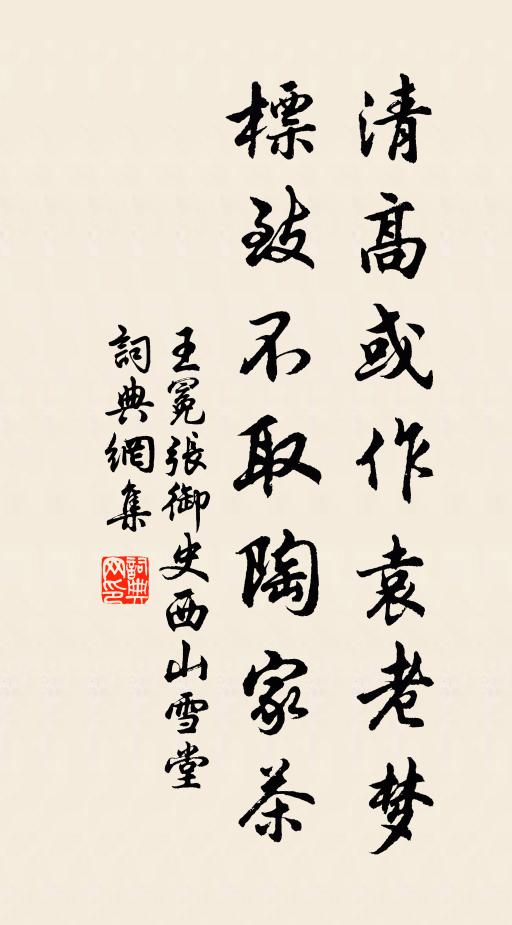 清高或作袁老梦
標致不取陶家茶
王冕張御史西山雪堂
詞典網集
詞典网印